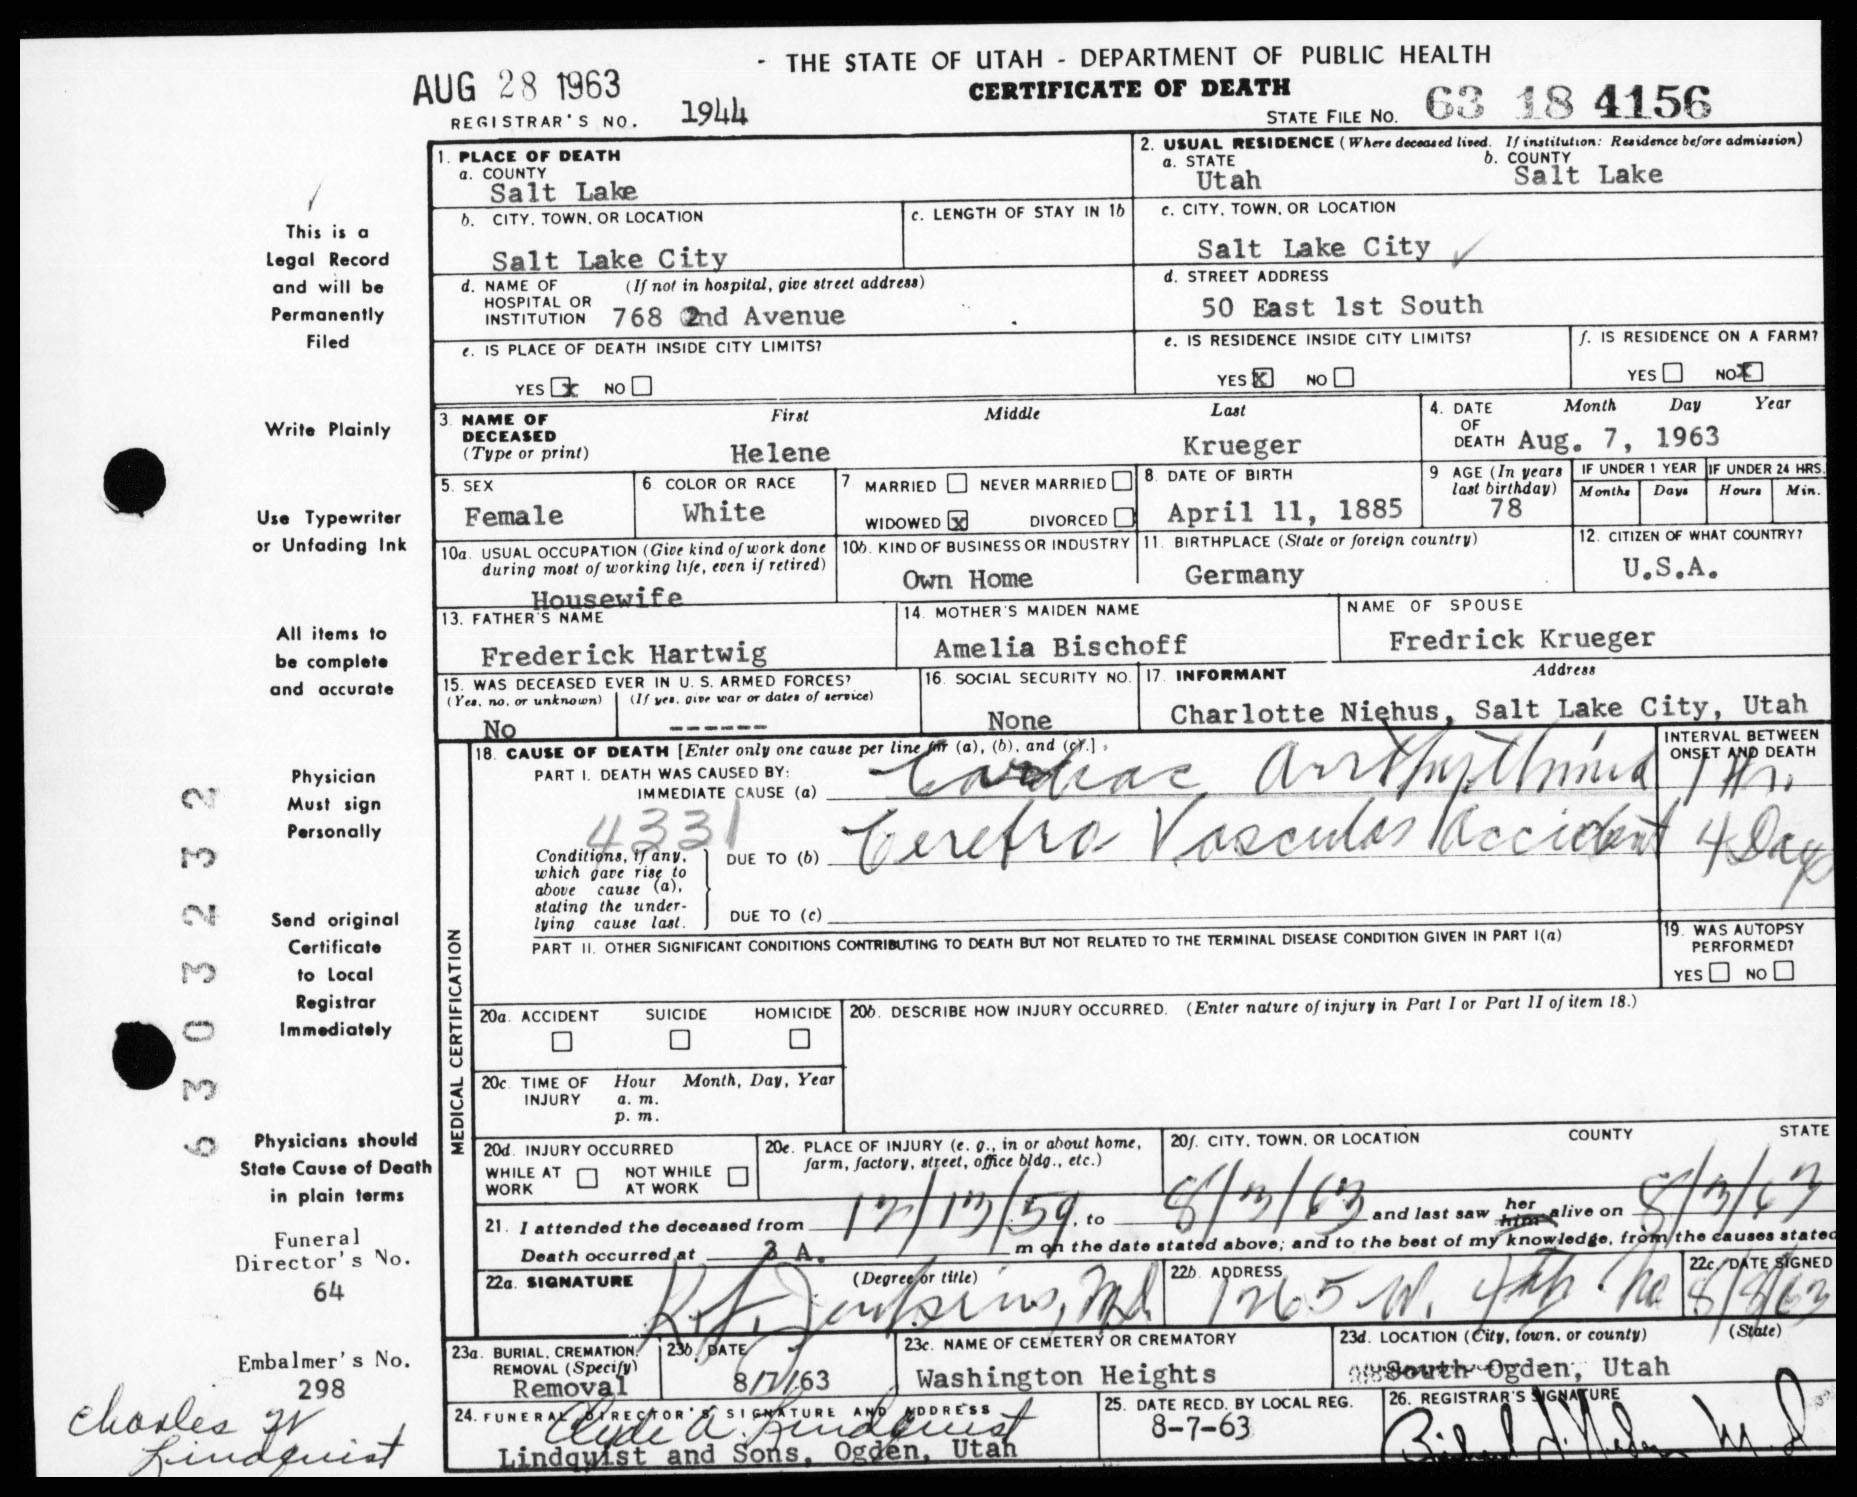 - THE STATE OF UTAH - DEPARTMENT OF PUBLIC HEALTH
CERTIFICATE OF DEATH
AUG 28 1963
REGISTRAR'S NO. 1944
STATE FILE NO. 63 18 4156
This is a
Legal Record
and will be
Permanently
Filed
Write Plainly
Use Typewriter
or Unfading Ink
All items to
be complete
and accurate
Physician
Must sign
Personally
Send original
Certificate
to Local
Registrar
Immediately
Physicians should
State Cause of Death
in plain terms
Funeral
Director's No.
64
Embalmer's No.
298
Charles W
Lindquist
6 3 0 3 2 3 2
1. PLACE OF DEATH
a. COUNTY
Salt Lake
2. USUAL RESIDENCE (Where deceased lived. If institution: Residence before admission)
a. STATE b. COUNTY
Utah Salt Lake
b. CITY, TOWN, OR LOCATION
Salt Lake City
c. LENGTH OF STAY IN 1b
c. CITY, TOWN, OR LOCATION
Salt Lake City
d. NAME OF (If not in hospital, give street address)
HOSPITAL OR
INSTITUTION 768 2nd Avenue
d. STREET ADDRESS
50 East 1st South
e. IS PLACE OF DEATH INSIDE CITY LIMITS?
YES x NO
e. IS RESIDENCE INSIDE CITY LIMITS?
YES X NO
f. IS RESIDENCE ON A FARM?
YES NO X
3. NAME OF First Middle Last
DECEASED
(Type or print) Helene Krueger
4. DATE Month Day Year
OF
DEATH Aug. 7, 1963
5. SEX
Female
6. COLOR OR RACE
White
7. MARRIED NEVER MARRIED
WIDOWED X DIVORCED
8. DATE OF BIRTH
April 11, 1885
9 AGE (In years
last birthday)
78
IF UNDER 1 YEAR
Months Days
IF UNDER 24 HRS.
Hours Min.
10a. USUAL OCCUPATION (Give kind of work done
during most of working life, even if retired)
Housewife
10b. KIND OF BUSINESS OR INDUSTRY
Own Home
11. BIRTHPLACE (State or foreign country)
Germany
12. CITIZEN OF WHAT COUNTRY?
U.S.A.
13. FATHER'S NAME
Frederick Hartwig
14. MOTHER'S MAIDEN NAME
Amelia Bischoff
NAME OF SPOUSE
Fredrick Krueger
15. WAS DECEASED EVER IN U. S. ARMED FORCES?
(Yes, no, or unknown) (If yes, give war or dates of service)
No ------
16. SOCIAL SECURITY NO.
None
17. INFORMANT Address
Charlotte Niehus, Salt Lake City, Utah
MEDICAL CERTIFICATION
18. CAUSE OF DEATH [Enter only one cause per line for (a), (b), and (c).]
INTERVAL BETWEEN
ONSET AND DEATH
PART I. DEATH WAS CAUSED BY:
IMMEDIATE CAUSE (a) Cardiac Arrhythmia 1 Hr.
4331
Conditions, if any,
which gave rise to
above cause (a),
stating the under-
lying cause last.
DUE TO (b) Cerebro Vascular Accident 4 Days
DUE TO (c)
PART II. OTHER SIGNIFICANT CONDITIONS CONTRIBUTING TO DEATH BUT NOT RELATED TO THE TERMINAL DISEASE CONDITION GIVEN IN PART I(a)
19. WAS AUTOPSY
PERFORMED?
YES NO
20a. ACCIDENT SUICIDE HOMICIDE
20b. DESCRIBE HOW INJURY OCCURRED. (Enter nature of injury in Part I or Part II of item 18.)
20c. TIME OF Hour Month, Day, Year
INJURY a. m.
p. m.
20d. INJURY OCCURRED
WHILE AT NOT WHILE
WORK AT WORK
20e. PLACE OF INJURY (e. g., in or about home,
farm, factory, street, office bldg., etc.)
20f. CITY, TOWN, OR LOCATION COUNTY STATE
21. I attended the deceased from 12/13/59, to 8/3/63 and last saw her him alive on 8/3/63
Death occurred at 3 A. m on the date stated above; and to the best of my knowledge, from the causes stated
22a. SIGNATURE (Degree or title)
Jenkins, M.D.
22b. ADDRESS
1265 W. 4th No
22c. DATE SIGNED
8/8/63
23a. BURIAL, CREMATION,
REMOVAL (Specify)
Removal
23b. DATE
8/7/63
23c. NAME OF CEMETERY OR CREMATORY
Washington Heights
23d. LOCATION (City, town, or county) (State)
South Ogden, Utah
24. FUNERAL DIRECTOR'S SIGNATURE AND ADDRESS
Clyde A. Lindquist
Lindquist and Sons, Ogden, Utah
25. DATE RECD. BY LOCAL REG.
8-7-63
26. REGISTRAR'S SIGNATURE
M.D.